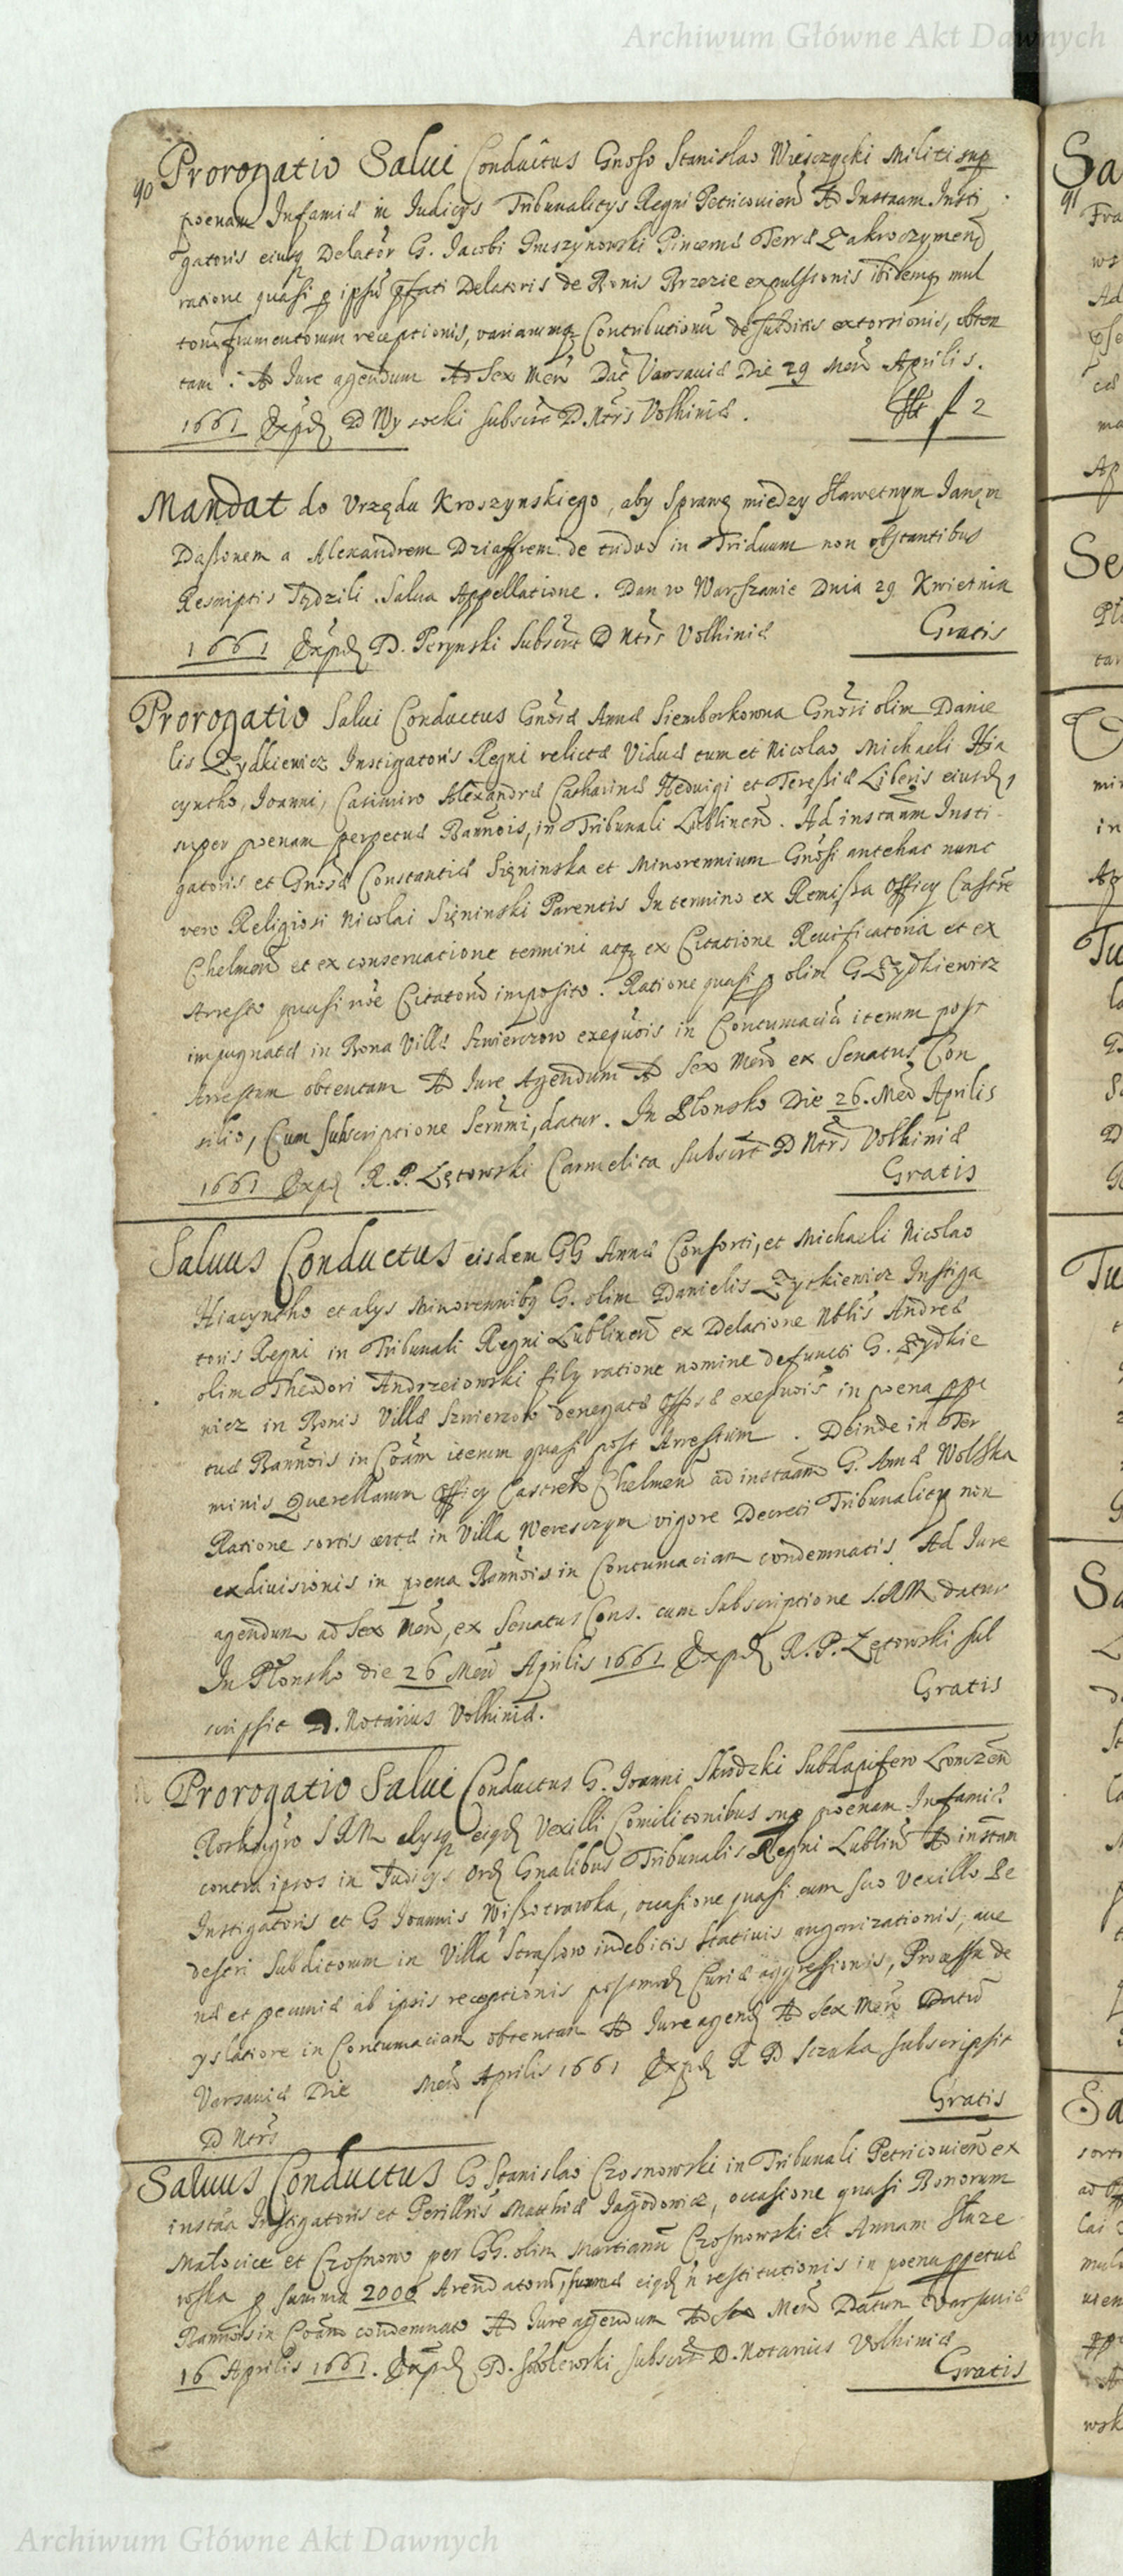 Archiwum Główne Akt Dawnych
90
Prorogatio Salui Conductus Gnoso Stanislao Wieszczycki Militi sup
poenam Infamiæ in Iudicijs Tribunalitijs Regni Petricouien Ad Instaam Insti
gatoris eiusq Delator G. Iacobi Gruszynowski Pincernæ Terræ Zakroczymen
ratione quasi p ipsu pfati Delatoris de Bonis Brzezie expulsionis ibidemq mul
torum frumentorum receptionis, variarumq Contributionu de subditis extorsionis, obten
tam. Ad Iure agendum Ad Sex Men Dat Varsauiæ Die 29 Men Aprilis.
1661 Exped D Wysocki subscrt D. Ntrs Volhiniæ. 2
Mandat do Vrzędu Kroszynskiego, aby Sprawę między Sławetnym Ianem
Dassonem a Alexandrem Dziaffrem de in Triduum non obstantibus
Rescriptis Sądzili. Salua Appellatione. Dan w Warszawie Dnia 29 Kwietnia
1661 Exped D. Perynski Subscrt D Ntrs Volhiniæ Gratis
Prorogatio Salui Conductus Gnosæ Annæ Siemborkowna Gnosi olim Danie
lis Zydkiewicz Instigatoris Regni relictæ Viduæ tum et Nicolao Michaeli Hia
cyntho, Ioanni, Casimiro Alexandræ Catharinæ Heduigi et Teressiæ Liberis eiusd,
super poenam perpetuæ Bannois, in Tribunali Lublinen. Ad instaam Insti
gatoris et Gnosæ Constantiæ Sięninska et Minorennium Gnosi antehac nunc
vero Religiosi Nicolai Sięninski Parentis In termino ex Remissa Officij Castre
Chelmen et ex conseruatione termini atq ex Citatione Reuificatoria et ex
Arresto quasi noe Citatoru imposito. Ratione quasi p olim G Zydkiewicz
impugnatæ in Bona Villæ Swierczow exequois in Contumacia iterum post
Arrestum obtentam Ad Iure Agendum Ad Sex Men ex Senatus Con
silio, Cum subscriptione Sermi, datur. In Płonsko Die 26. Men Aprilis
1661 Exped R. P. Lętowski Carmelita subscrt D Ntrs Volhiniæ
Gratis
Saluus Conductus eisdem GG Annæ Consorti, et Michaeli Nicolao
Hiacyntho et alys Minorennibq G. olim Danielis Zytkiewicz Instiga
toris Regni in Tribunali Regni Lublinen ex Delatione Nblis Andreæ
olim Theodori Andrzeiowski filij ratione nomine defuncti G. Zydkie
wicz in Bonis Villæ Swierczow denegatæ Offosæ exequois in poena ppe
tuæ Bannois in Coam iterum quasi post Arrestum. Deinde in Ter
minis Querellarum Officij Castren Chelmen ad instaam G. Annæ Wolska
Ratione sortis certæ in Villa Wereszczyn vigore Decreti Tribunalitij non
exdiuisionis in poena Bannois in Contumaciam condemnatis Ad Iure
agendum ad Sex Men, ex Senatus Cons. cum subscriptione S.R.M. datur
In Płonsko die 26 Men Aprilis 1661 Exped R. P. Lętowski sub
scripsit D. Notarius Volhiniæ. Gratis
Prorogatio Salui Conductus G. Ioanni Skrodzki Subdapifero Lomzen
Rothmgro S R M alysq eiqd Vexilli Comilitonibus sup poenam Infamiæ
contra ipsos in Iudicijs Ord Gnalibus Tribunalis Regni Lublin Ad instam
Instigatoris et G Ioannis Wissotrawka, occasione quasi cum suo Vexillo de
Subditorum in Villa Strasow indebitis statiuis angarizationis, aue
næ et pecuniæ ab ipsis receptionis postmod Curiæ aggressionis, Processu de
in Contumaciam obtentam Ad Iure agend Ad Sex Men Datu
Varsauiæ Die Men Aprilis 1661 Exped R D Sczuka subscripsit
D Ntrs Gratis
Saluus Conductus G Stanislao Czosnowski in Tribunali Petricouien ex
instaa Instigatoris et Perillris Matthiæ Iagodowicz, occasione quasi Bonorum
Małocice et Czosnowo per GG. olim Martianu Czosnowski et Annam Stare
wska p summa 2000 Arendatoru, summæ eiqd n restitutionis in poena ppetuæ
Bannois in Coam condemnato Ad Iure agendum Ad Sex Men Datum Varsauiæ
16 Aprilis 1661. Exped D. Sobolewski subscrt D. Notarius Volhiniæ
Gratis
Archiwum Główne Akt Dawnych